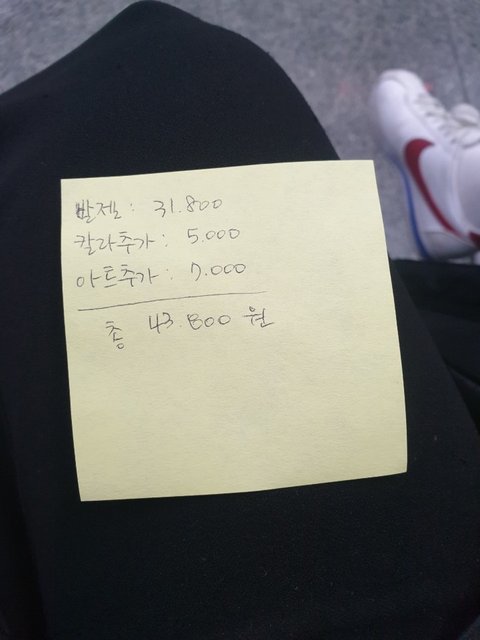 발젤: 31.800
칼라추가: 5.000
아트추가: 7.000
총 43.800 원